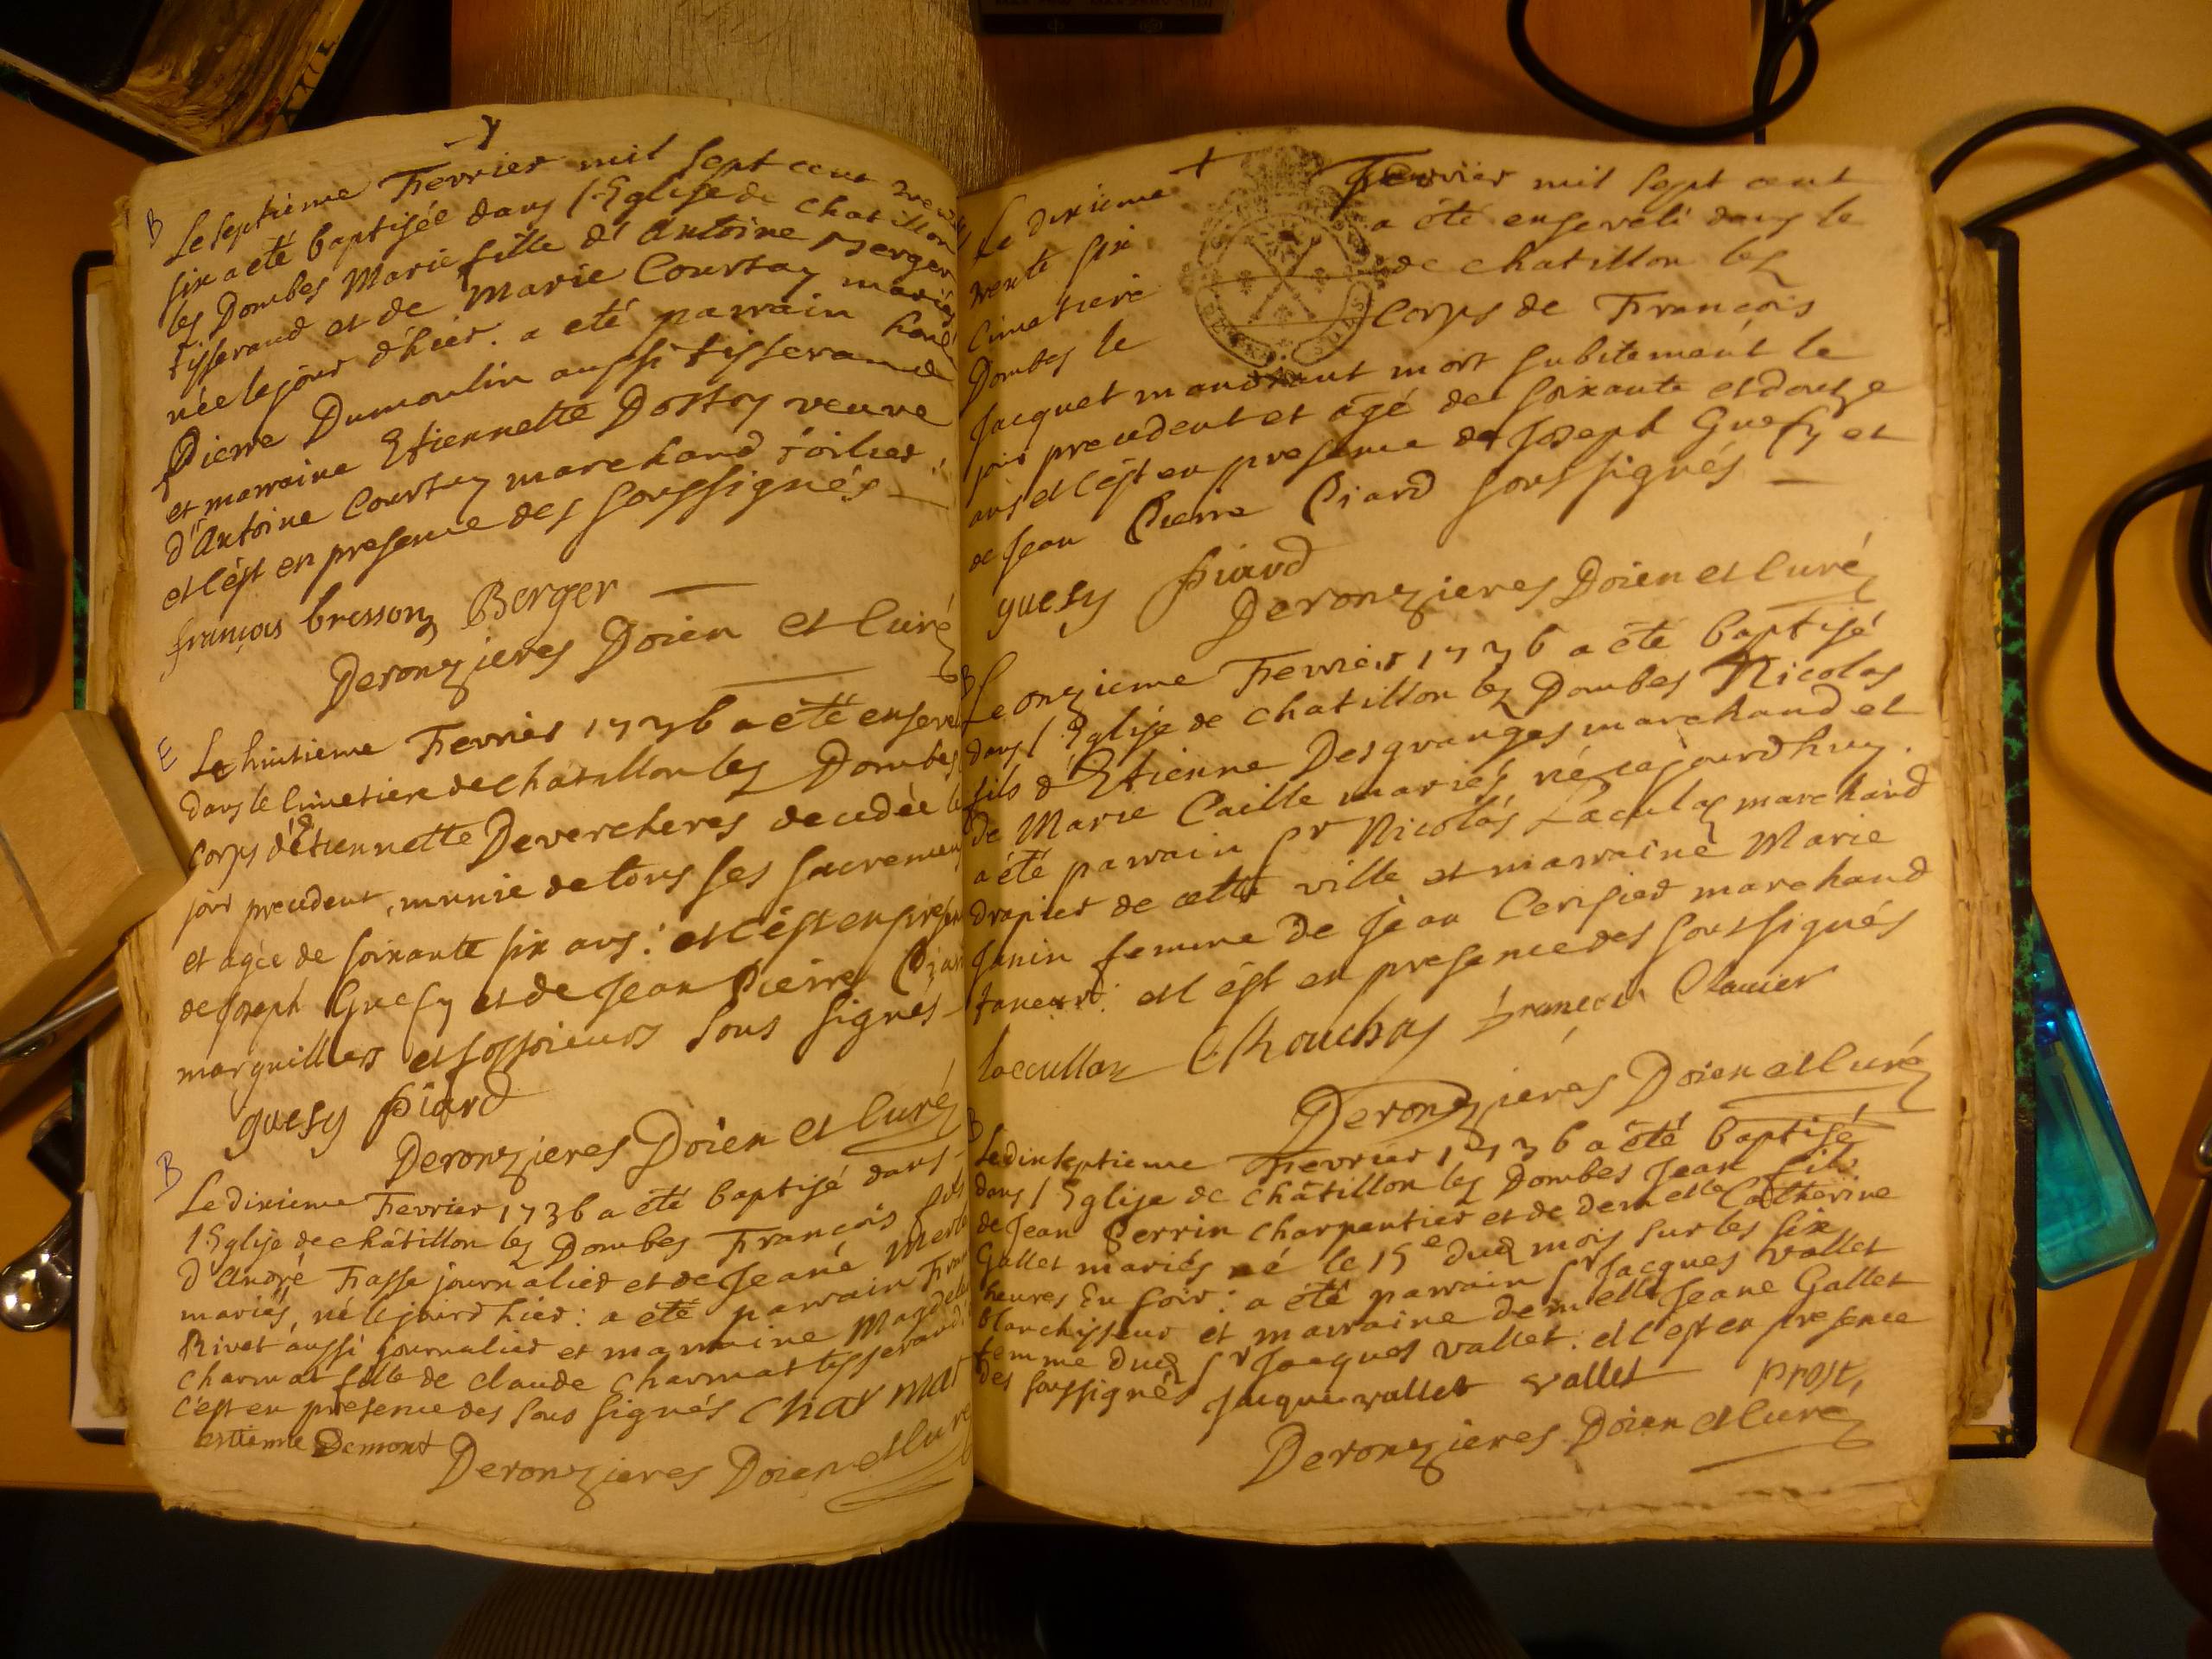 B
Le septieme Fevrier mil sept cent trente
six a eté baptisée dans l'Eglise de chatillon
les Dombes Marie fille d'Antoine Berger
tisserand et de Marie Courtay mariés
née le jour d'hier. a eté parrain
Pierre Dumoulin aussi tisserand
et marraine Etiennette Dortoy veuve
d'Antoine Courtay marchand toilier,
et c'est en presence des soussignés
françois bresson Berger
Deronzieres Doien et Curé
E
Le huitieme Fevrier 1736 a eté enseveli
dans le Cimetiere de chatillon les Dombes
corps d'Etiennette Devercheres decedée le
jour precedent, munie de tous ses sacremens
et agée de soixante six ans: et c'est en presence
de Joseph Guesy et de Jean Pierre Piard
marguilliers et fossoieurs sous signés
guesy piard
Deronzieres Doien et Curé
B
Le dixieme Fevrier 1736 a eté baptisé dans
l'Eglise de châtillon les Dombes François fils
d'André Frasse journalier et de Jeane
mariés, né le jour d'hier: a eté parrain
Rivet aussi journalier et marraine Magdelene
Charmat fille de claude Charmat tisserand:
c'est en presence des sous signés Charmat
estienne Demont
Deronzieres Doien et Curé
Le dixieme Fevrier mil sept cent
trente six a été enseveli dans le
Cimetiere de chatillon les
Dombes le Corps de François
Jacquet mandiant mort subitement le
jour precedent et agé de soixante et douze
ans et c'est en presence de Joseph Guesy et
de Jean Pierre Piard soussignés
guesy piard
Deronzieres Doien et Curé
B
Le onzieme Fevrier 1736 a été baptisé
dans l'Eglise de chatillon les Dombes Nicolas
fils d'Etienne Desgranges marchand et
de Marie Caille mariés, né cejourdhuy.
a été parrain Sr Nicolas Lacula marchand
drapier de cette ville et marraine Marie
Janin femme de Jean Cerisier marchand
taneur: et c'est en presence des soussignés
lacullaz François Clavier
Deronzieres Doien et Curé
B
Le dixseptieme Fevrier 1736 a été baptisé
dans l'Eglise de châtillon les Dombes Jean fils
de Jean Perrin charpentier et de demelle Catherine
Gallet mariés né le 15e dud mois sur les six
heures du soir: a été parrain Sr Jacques Vallet
blanchisseur et marraine demelle Jeane Gallet
femme dud Sr Jacques vallet: et c'est en presence
des soussignés Jacque vallet vallet prost,
Deronzieres Doien et Curé